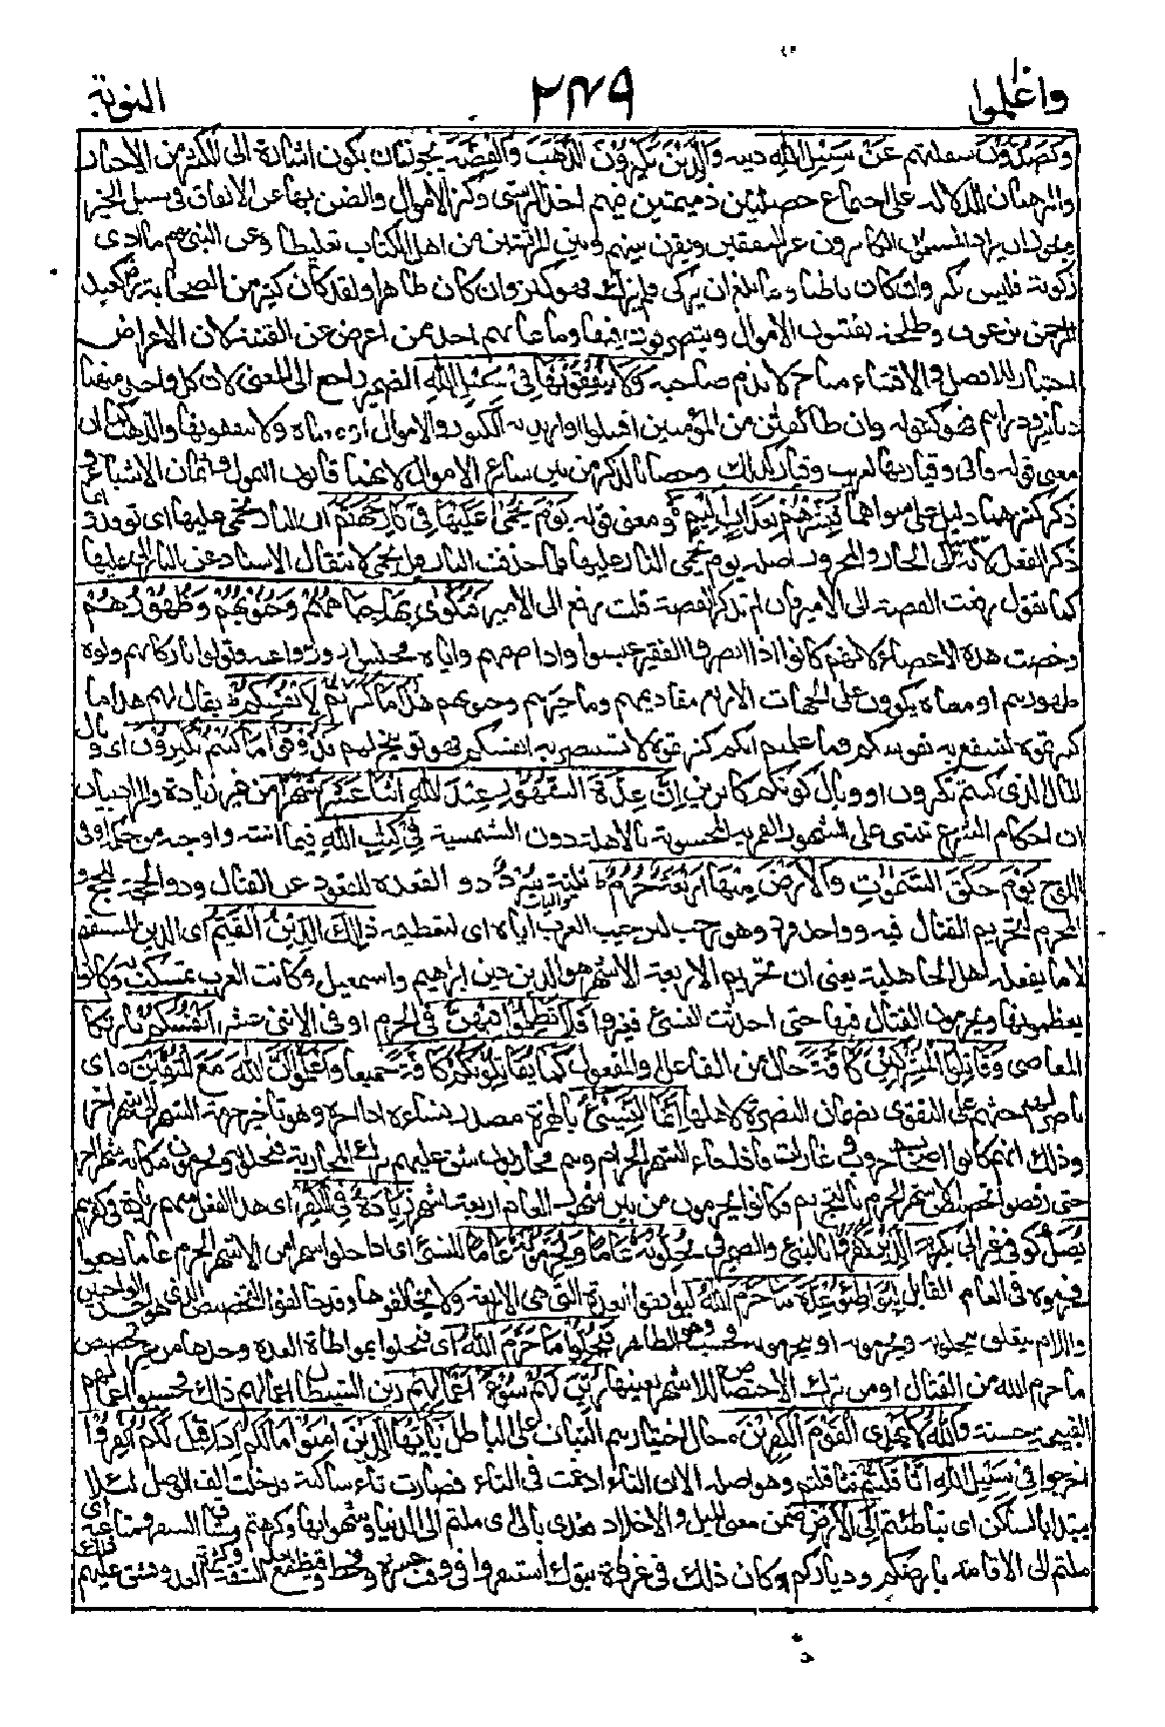 واعلموا
٢٧٩
التوبة
ويصدون سفلتهم عن سبيل الله دينه والذين يكنزون الذهب والفضة يجوز ان يكون اشارة الى الكثير من الاحبار
والرهبان للدلالة على اجتماع خصلتين ذميمتين فيهم اخذ الرشى وكنز الاموال والضن بها عن الانفاق فى سبيل الخير
ويجوز ان يراد المسلمون الكانزون غير المنفقين ويقرن بينهم وبين المرتشين من اهل الكتاب تغليظا وعن النبى ما ادى
زكوته فليس بكنز وان كان باطنا وما بلغ ان يزكى فلم يزك فهو كنز وان كان ظاهرا ولقد كان كثير من الصحابة كعبد
الرحمن بن عوف وطلحة يقتنون الاموال ويتصرفون فيها وما عابهم احد ممن اعرض عن القنية لان الاعراض
اختيار للافضل والاقتناء مباح لا يذم صاحبه ولا ينفقونها فى سبيل الله الضمير راجع الى المعنى لان كل واحد منهما
دنانير ودراهم فهو كقوله وان طائفتن من المؤمنين اقتتلوا او اريد به الكنوز والاموال او معناه ولا ينفقونها والذهب كما ان
معنى قوله فانى وقيار بها لغريب وقيار كذلك وخصا بالذكر من بين سائر الاموال لانهما قانون التمول واثمان الاشياء و
ذكر كنزهما دليل على ما سواهما فبشرهم بعذاب اليم ومعنى قوله يوم يحمى عليها فى نار جهنم ان النار تحمى عليها اى توقد وانما
ذكر الفعل لانه مسند الى الجار والمجرور اصله يوم تحمى النار عليها فلما حذفت النار قيل يحمى لانتقال الاسناد عن النار الى عليها
كما تقول رفعت القصة الى الامير فان لم تذكر القصة قلت رفع الى الامير فتكوى بها جباههم وجنوبهم وظهورهم
وخصت هذه الاعضاء لانهم كانوا اذا ابصروا الفقير عبسوا واذا ضمهم واياه مجلس ازوروا عنه وتولوا باركانهم وولوه
ظهورهم او معناه يكوون على الجهات الاربع مقاديمهم وماخيرهم وجنوبهم هذا ما كنزتم لانفسكم يقال لهم هذا ما
كنزتموه لتنتفع به نفوسكم وما علمتم انكم كنزتموه لتستضر به انفسكم فهو توبيخ لهم فذوقوا ما كنتم تكنزون اى وبال
المال الذى كنتم تكنزون او وبال كونكم كانزين ان عدة الشهور عند الله اثنا عشر شهرا من غير زيادة والمراد بيان
ان احكام الشرع تبتنى على الشهور القمرية المحسوبة بالاهلة دون الشمسية فى كتب الله فيما اثبته واوجبه من حكمه او فى
اللوح يوم خلق السموات والارض منها اربعة حرم ثلثة سرد ذو القعدة للقعود عن القتال وذو الحجة للحج و
المحرم لتحريم القتال فيه وواحد فرد وهو رجب لترجيب العرب اياه اى لتعظيمه ذلك الدين القيم اى الدين المستقيم
لا ما يفعله اهل الجاهلية يعنى ان تحريم الاربعة الاشهر هو الدين دين ابرهيم واسمعيل وكانت العرب تمسكت به وكانوا
يعظمونها ويحرمون القتال فيها حتى احدثت النسئ فغيروا فلا تظلموا فيهن فى الحرم او فى الاثنى عشر انفسكم بارتكاب
المعاصى وقاتلوا المشركين كافة حال من الفاعل او المفعول كما يقاتلونكم كافة جميعا واعلموا ان الله مع المتقين اى
ناصرلهم حثهم على التقوى بضمان النصرة لاهلها انما النسئ بالهمزة مصدر نسأه اذا اخره وهو تاخير حرمة الشهر الى شهر اخر
وذلك انهم كانوا اصحاب حروب وغارات فاذا جاء الشهر الحرام وهم محاربون شق عليهم ترك المحاربة فيحلونه ويحرمون مكانه شهرا اخر
حتى رفضوا تخصيص الاشهر الحرم بالتحريم فكانوا يحرمون من بين شهور العام اربعة اشهر زيادة فى الكفر اى هذا الفعل منهم زيادة فى كفرهم
يضل كوفى غير ابى بكر به الذين كفروا بالنسئ والضمير فى يحلونه عاما ويحرمونه عاما للنسئ اى اذا احلوا شهرا من الاشهر الحرم عاما رجعوا
فحرموه فى العام القابل ليواطئوا عدة ما حرم الله ليوافقوا العدة التى هى الاربعة ولا يخالفوها وقد خالفوا التخصيص الذى هو احد الواجبين
واللام يتعلق بيحلونه ويحرمونه او بيحرمونه فحسب وهو الظاهر فيحلوا ما حرم الله اى فيحلوا بمواطاة العدة وحدها من غير تخصيص
ما حرم الله من القتال او من ترك الاختصاص للاشهر بعينها زين لهم سوء اعمالهم زين الشيطان لهم اعمالهم ذلك فحسبوا اعمالهم
القبيحة حسنة والله لا يهدى القوم الكفرين حال اختيارهم الثبات على الباطل يايها الذين امنوا ما لكم اذا قيل لكم انفروا
اخرجوا فى سبيل الله اثاقلتم تثاقلتم وهو اصله الا ان التاء ادغمت فى الثاء فصارت ثاء ساكنة فدخلت الف الوصل لئلا
يبتدا بالساكن اى تباطئتم الى الارض ضمن معنى الميل والاخلاد فعدى بالى اى ملتم الى الدنيا وشهواتها وكرهتم مشاق السفر ومتاعبه اى
ملتم الى الاقامة بارضكم ودياركم وكان ذلك فى غزوة تبوك استنفروا فى وقت عسرة وقحط وقيظ مع بعد الشقة وكثرة العدو فشق عليهم ذلك